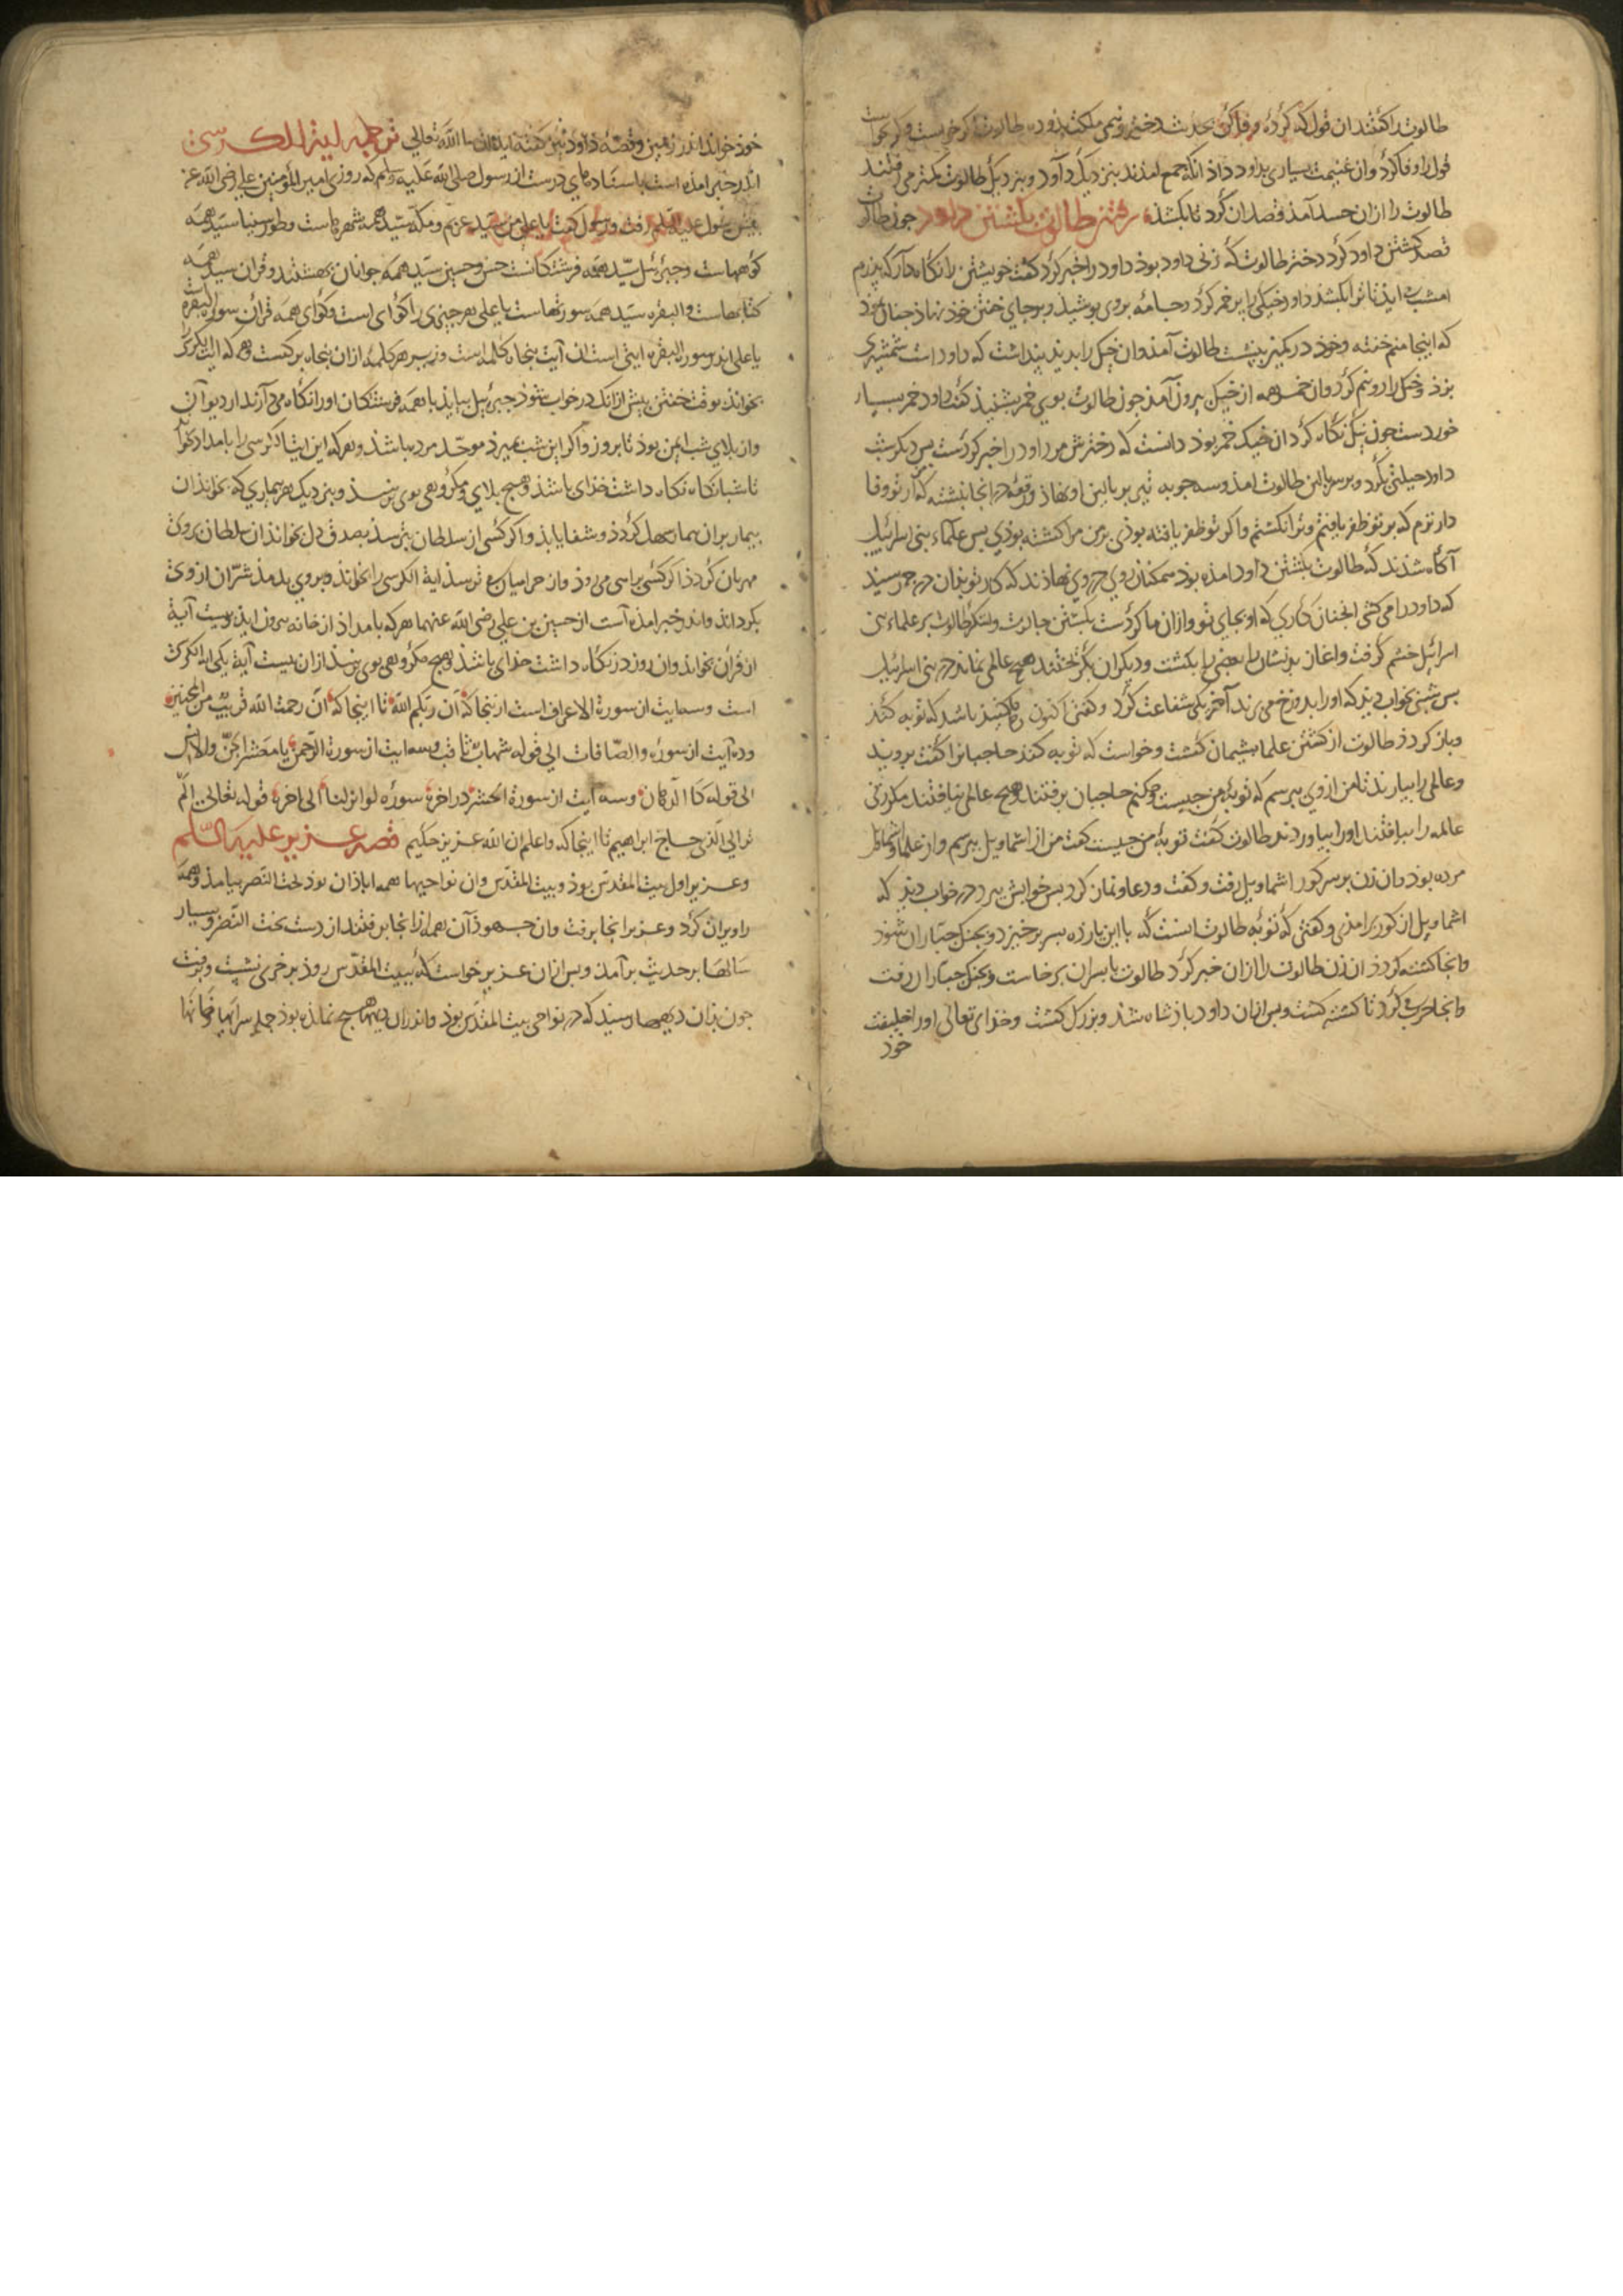 طالوت را گفتند ان قول که کردهٔ وفا کن حدیث دختر و نیمی ملکت بدو ده طالوت
قول را وفا کرد وان غنیمت بسیاری بداود داذ انکه جمع امذند بنزدیک داود و بنزدیک طالوت کمتر می رفتند
طالوت را ازان حسد آمذ قصد ان کرد تا بکشذ رفتن طالوت بکشتن داود جون طالوت
قصد کشتن داود کرد دختر طالوت که زن داود بوذ داود را خبر کرد گفت خویشتن را نکاه دار که پدرم
امشب ایذ تا ترا بکشذ داود خیکی را پر خمر کرد و جامه بروی پوشیذ و بر جای خفتن خوذ نهاذ جنان نموذ
که اینجا منم خفته و خوذ در کمین بنشست طالوت آمذ وان خیک را بدیذ پنداشت که داود است شمشیری
بزد و خیک را دو نیم کرد وان خمر همه از خیک بیرون آمذ جون طالوت بوی خمر بشنیذ گفت داود خمر بسیار
خوردست جون نیک نکاه کرد ان خیک خمر بوذ دانست که دخترش مر داود را خبر کردست پس دیکر شب
داود حیلتی بکرد و بر سر بالین طالوت امذ و سه جوبه تیر بر بالین او نهاذ و رقعهٔ در انجا نبشته که از تو وفا
دارترم که بر تو ظفر یافتم و ترا نکشتم واکر تو ظفر یافته بوذی بر من مرا کشته بوذی پس علماء بنی اسرائیل
آکاه شذند که طالوت بکشتن داود امذه بوذ همکنان روی در وی نهاذند که کار تو بذان در رسیذ
که داود را می کشی انجنان کاری که او بجای تو و ازان ما کردست بکشتن جالوت و لشکر طالوت بر علماء بنی
اسرائیل خشم گرفت و اغاز بدیشان بعضی را بکشت و دیکران بکریختند هیچ عالمی نماند در بنی اسرائیل
پس شبی بخواب دید که او را بدوزخ می برند آخر یکی شفاعت کرد و گفتی اکنون رها کنیذ باشد که توبه کنذ
و باز کردذ طالوت از کشتن علما پشیمان گشت و خواست که توبه کنذ حاجبانرا گفت برویذ
و عالمی را بیاریذ تا من از وی بپرسم که توبهٔ من جیست و جکنم حاجبان برفتند هیچ عالمی نیافتند مکر زنی
عالمه را بیافتند او را بیاوردند طالوت گفت توبهٔ من جیست گفت من از اشماویل بپرسم و از علما اشماویل
مرده بوذ وان زن بر سر کور اشماویل رفت و گفت و دعا و نماز کرد پس خوابش ببرد در خواب دیذ که
اشماویل از کور برامذی و گفتی که توبهٔ طالوت انست که با این یازده پسر برخیزد و بجنک جباران شوذ
وانجا کشته کردذ ان زن طالوت را ازان خبر کرد طالوت با پسران برخاست و بجنک جباران رفت
وانجا حرب کرد تا کشته گشت و پس ازان داود باذشاه شذ و بزرک گشت و خدای تعالی او را خلیفت
خوذ
خوذ خوانذ اندر زمین و قصهٔ داود نیز گفته ایذ ان شا الله تعالی ترجمه ایة الکرسی
اندر خبر امذه است باسنادهای درست از رسول صلی الله علیه وسلم که روزی امیر المؤمنین علی رضی الله عنه
پیش رسول علیه السلم رفت رسول گفت یا علی من سید عربم و مکه سید همه شهرهاست و طور سینا سید همه
کوههاست و جبرئیل سید همه فرشتکانست حسن و حسین سید همه جوانان بهشتند و قران سید همه
کتابهاست و البقره سید همه سورتهاست یا علی هر جیزی را کوای است و کوای همه قران سورة البقره
یا علی اندر سورة البقره ایتی است ان آیت پنجاه کلمه است و زیر هر کلمهٔ ازان پنجاه برکت است و هر که ایة الکرسی
بخواند بوقت خفتن پیش ازانک در خواب شوذ جبرئیل بیایذ با همه فرشتکان او را نکاه می دارند از دیو آن
واز بلای شب ایمن بوذ تا بروز و اکر این شب بمیرذ موحد مرده باشذ و هر که این ایة الکرسی را بامداد بخواند
تا شبانکاه نکاه داشت خذای باشذ و هیچ بلای و مکروهی بوی نرسذ و بنزدیک هر بیماری که بخوانذ ان
بیمار بران بیمار سهل کردذ و شفا یابذ و اکر کسی از سلطان بترسذ بصدق دل بخوانذ ان سلطان بر وی
مهربان کردذ اکر کسی براهی می روذ واز حرامیان ترسذ ایة الکرسی را بخوانذ و بروی بدمذ شر ان از وی
بکرداند و اندر خبر امذه است از حسین بن علی رضی الله عنهما هر که بامداذ از خانه بیرون ایذ بیست آیة
از قران بخواند وان روز در نکاه داشت خذای باشذ و هیچ مکروهی بوی نرسذ ازان بیست آیة یکی ایة الکرسی
است و سه ایت از سورة الاعراف است ازینجا که آن ربکم الله تا اینجا که ان رحمت الله قریب من المحسنین
و ده آیت از سوره والصافات الی قوله شهاب ثاقب و سه ایت از سورة الرحمن یا معشر الجن والانس
الی قوله کالدهان و سه ایت از سورة الحشر در اخر سوره لو انزلنا الی اخره قوله تعالی الم
تر الی الذی حاج ابراهیم تا اینجا که واعلم ان الله عزیز حکیم قصه عزیر علیه السلم
و عزیر اول ببیت المقدس بوذ و بیت المقدس وان نواحیها همه اباذان بوذ بخت النصر بیامذ و همه
را ویران کرد و عزیر از انجا برفت وان جهوذان همه از انجا برفتند از دست بخت النصر و بسیار
سالها بر حدیث برآمذ و پس ازان عزیر خواست که ببیت المقدس روذ بر خری نشست و برفت
جون بذان دیهها رسیذ که در نواحی بیت المقدس بوذ و اندران دیهها هیچ نمانده بوذ جمله سرایها و خانها